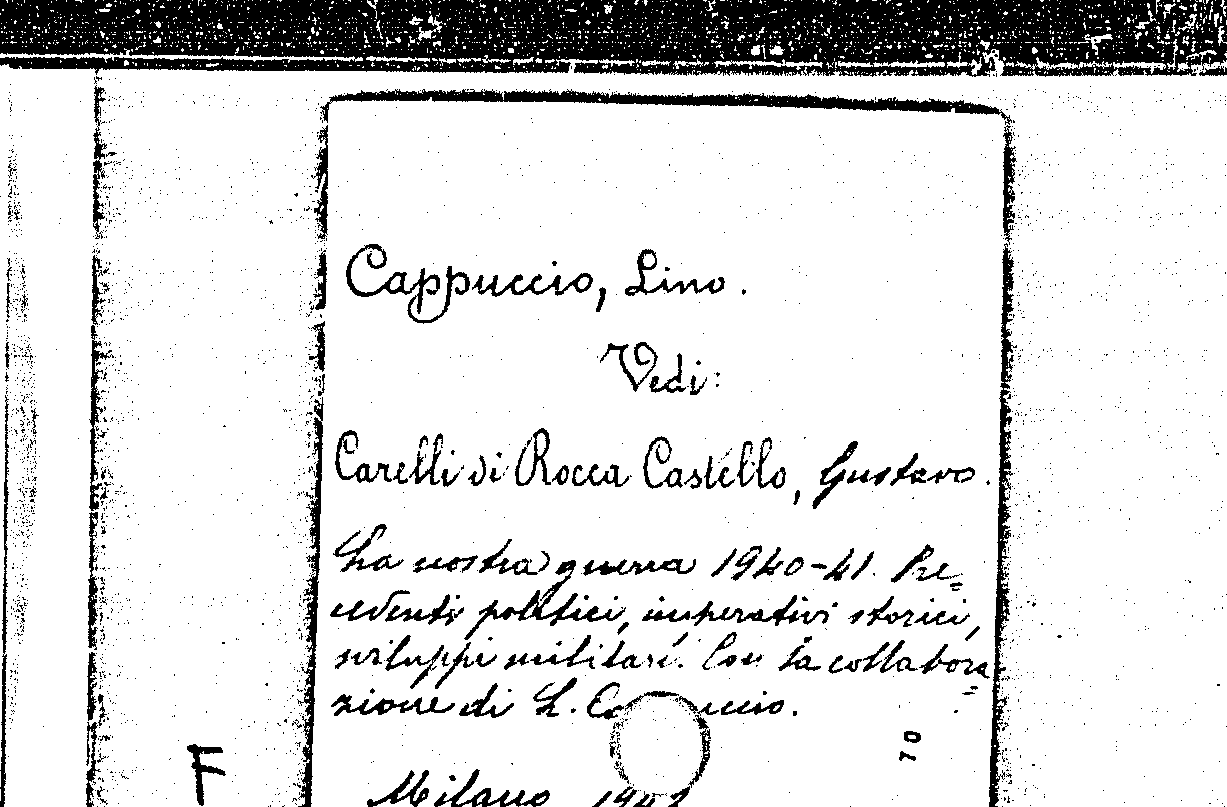 Cappuccio, Lino.
Vedi:
Carelli di Rocca Castello, Gustavo.
La nostra guerra 1940-41. Pre=
cedenti politici, imperativi storici,
sviluppi militari. Con la collabora=
zione di L. Ca uccio.
70
F
Milano